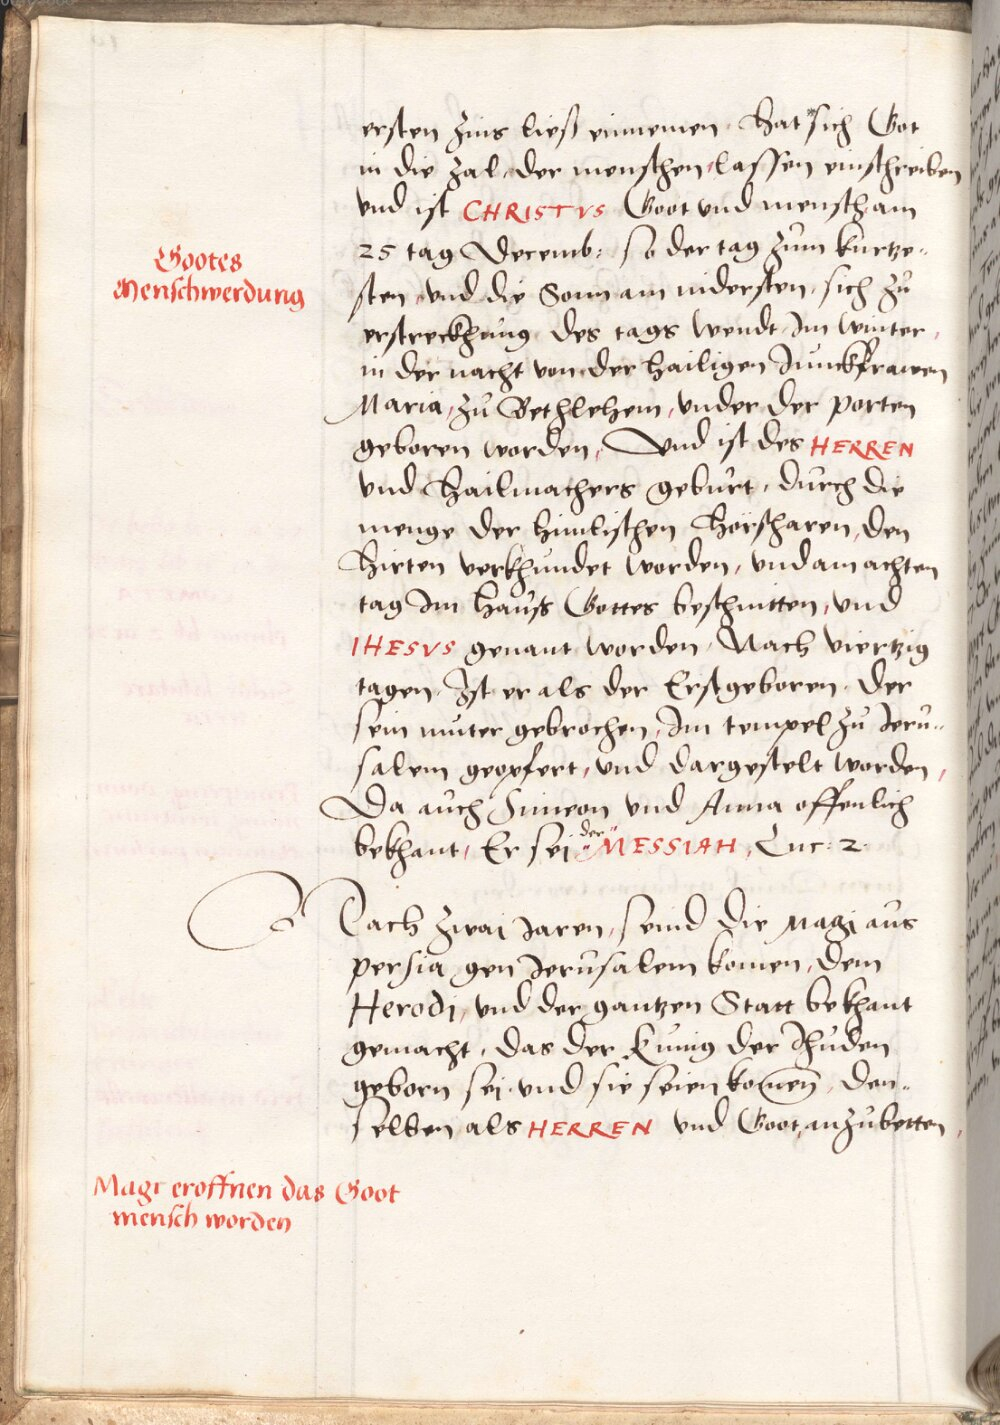 ersten zins ließ einnemen. Hat sich Got
in die zal, der menschen, lassen einschreiben
vnd ist CHRISTVS Goot vnd mensch am
25 tag Decemb: so der tag zum kurtze-
Gootes
Menschwerdung
sten, vnd die Sonn am nidersten, sich zů
erstreckhung des tags wendt, Im winter,
in der nacht von der hailigen Junckfrawen
Maria, zů Bethlehem, vnder der porten
geboren worden, Vnd ist des HERREN
vnd Hailmachers geburt, durch die
menge der himlischen Hörscharen, den
Hirten verkhundet worden, vnd am achten
tag Im hauß Gottes beschnitten, vnd
IHESVS genant worden. Nach viertzig
tagen. Ist er als der Erstgeboren. Der
sein muter gebrochen, Im tempel zů Jeru-
salem geopfert, vnd dargestelt worden,
Da auch Simeon vnd Anna offenlich
bekhant, Er sei der MESSIAH, Luc: 2.
Nach zwai Jaren, seind die Magi aus
persia gen Jerusalem komen, dem
Herodi, vnd der gantzen Statt bekhant
gemacht, das der Kunig der Jhuden
geborn sei, vnd sie seien komen, den-
selben als HERREN vnd Goot, anzubetten,
Magi eroffnen das Goot
mensch worden